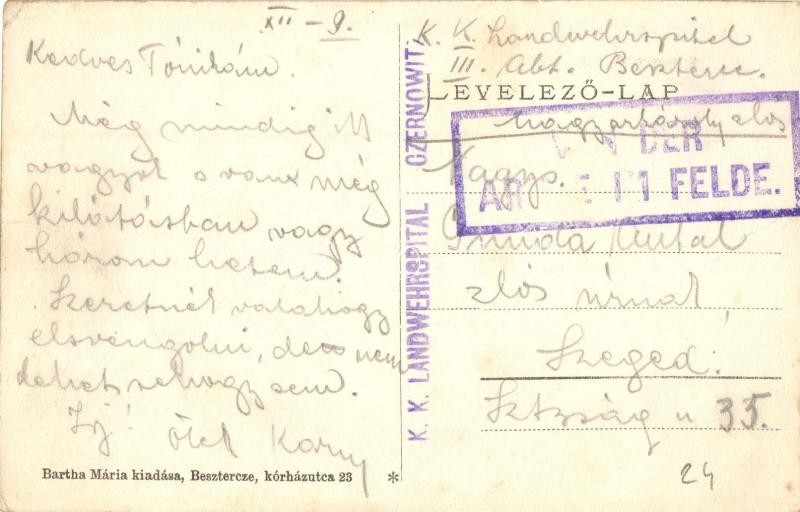 XII – 9.
Kedves Tónikám.
Még mindig itt
vagyok s van még
kilátásban vagy
három hetem.
Szeretnék valahogy
, de nem
lehet sehogy sem.
Írj! ölel
Bartha Mária kiadása, Besztercze, kórházutca 23 *
K. K. LANDWEHRSPITAL CZERNOWITZ
K. K. Landwehrspital
III. Abt. Besztercze.
LEVELEZŐ-LAP
DER
FELDE.
Nagys.
Antal
úrnak
Szeged.
u 35.
24